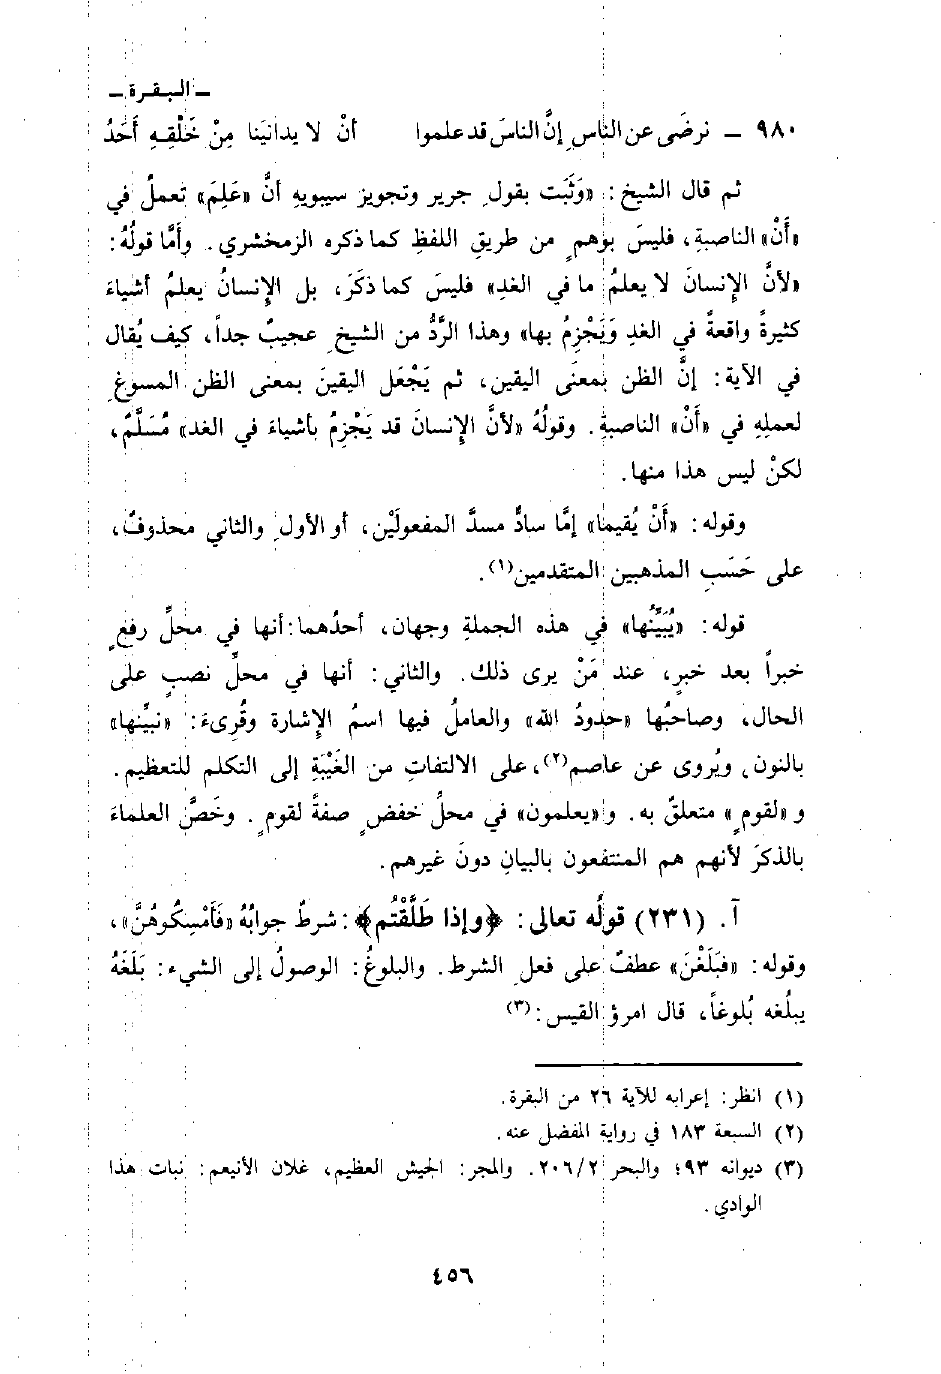 ـ البقرة ـ
٩٨٠ ـ نرضَى عن الناسِ إنَّ الناسَ قد علموا أنْ لا يدانيَنا مِنْ خَلْقِهِ أَحَدُ
ثم قال الشيخ: «وَثَبَت بقولِ جرير وتجويز سيبويهِ أنَّ «عَلِمَ» تعملُ في
«أَنْ» الناصبةِ، فليسَ بوَهمٍ من طريقِ اللفظِ كما ذكره الزمخشري. وأَمَّا قولُهُ:
«لأنَّ الإنسانَ لا يعلمُ ما في الغدِ» فليسَ كما ذكَرَ، بل الإِنسانُ يعلمُ أشياءَ
كثيرةً واقعةً في الغدِ وَيَجْزِمُ بها» وهذا الرَّدُّ من الشيخِ عجيبٌ جداً، كيف يُقال
في الآية: إنَّ الظن بمعنَى اليقين، ثم يَجْعَل اليقينَ بمعنى الظن المسوغِ
لعملِهِ في «أَنْ» الناصبةِ. وقولُهُ «لأنَّ الإِنسانَ قد يَجْزِمُ بأشياءَ في الغد» مُسَلَّمٌ،
لكنْ ليس هذا منها.
وقوله: «أَنْ يُقيما» إمَّا سادٌّ مسدَّ المفعولَيْن، أو الأولِ والثاني محذوفٌ،
على حَسَبِ المذهبين المتقدمين(١).
قوله: «يُبَيِّنُها» في هذه الجملةِ وجهان، أحدُهما: أنها في محلِّ رفعٍ
خبراً بعد خبرٍ، عند مَنْ يرى ذلك. والثاني: أنها في محلِّ نصبٍ على
الحال، وصاحبُها «حدودُ الله» والعاملُ فيها اسمُ الإِشارة وقُرِىءَ: «نبيِّنها»
بالنون، ويُروى عن عاصم(٢)، على الالتفاتِ من الغَيْبَةِ إلى التكلم للتعظيم.
و «لقومٍ» متعلقٌ به. و«يعلمون» في محلِّ خفضٍ صفةً لقومٍ. وخَصَّ العلماءَ
بالذكرِ لأنهم هم المنتفعون بالبيانِ دونَ غيرهم.
آ. (٢٣١) قولُه تعالى: ﴿وإذا طَلَّقْتُم﴾: شرطٌ جوابُهُ «فَأَمْسِكُوهُنَّ»،
وقوله: «فبَلَغْنَ» عطفٌ على فعلِ الشرط. والبلوغُ: الوصولُ إلى الشيء: بَلَغَهُ
يبلُغه بُلوغاً، قال امرؤ القيس:(٣)
(١) انظر: إعرابه للآية ٢٦ من البقرة.
(٢) السبعة ١٨٣ في رواية المفضل عنه.
(٣) ديوانه ٩٣؛ والبحر ٢٠٦/٢. والمجر: الجيش العظيم، غلان الأنيعم: نبات هذا
الوادي.
٤٥٦